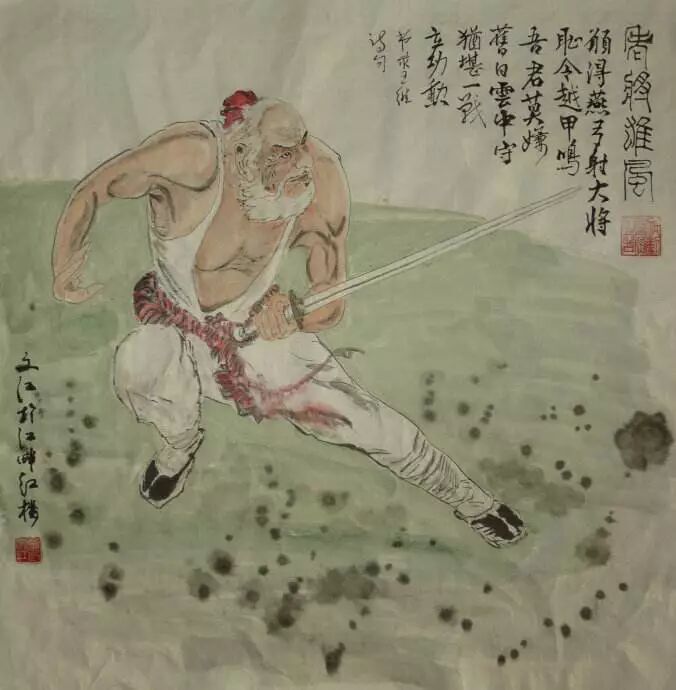 老將雄風
願得燕弓射大將
恥令越甲鳴
吾君莫嫌
舊日雲中守
猶堪一戰
立功勳
节录王维
诗句
文江於江畔红楼